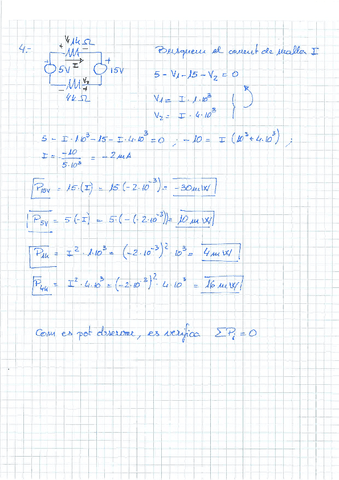 4.- V1 1k Ω Busquem el corrent de malla I
5V I 15V
V2
4k Ω
5 - V1 - 15 - V2 = 0
V1 = I · 1·10³
V2 = I · 4·10³
5 - I·10³ - 15 - I·4·10³ = 0 ; -10 = I (10³ + 4·10³) ;
I = -10 / 5·10³ = -2 mA
P15V = 15·(I) = 15(-2·10⁻³) = -30 mW
P5V = 5(-I) = 5·(-(-2·10⁻³)) = 10 mW
P1k = I²·1·10³ = (-2·10⁻³)² 10³ = 4 mW
P4k = I²·4·10³ = (-2·10⁻³)²·4·10³ = 16 mW
Com es pot observar, es verifica ΣPi = 0